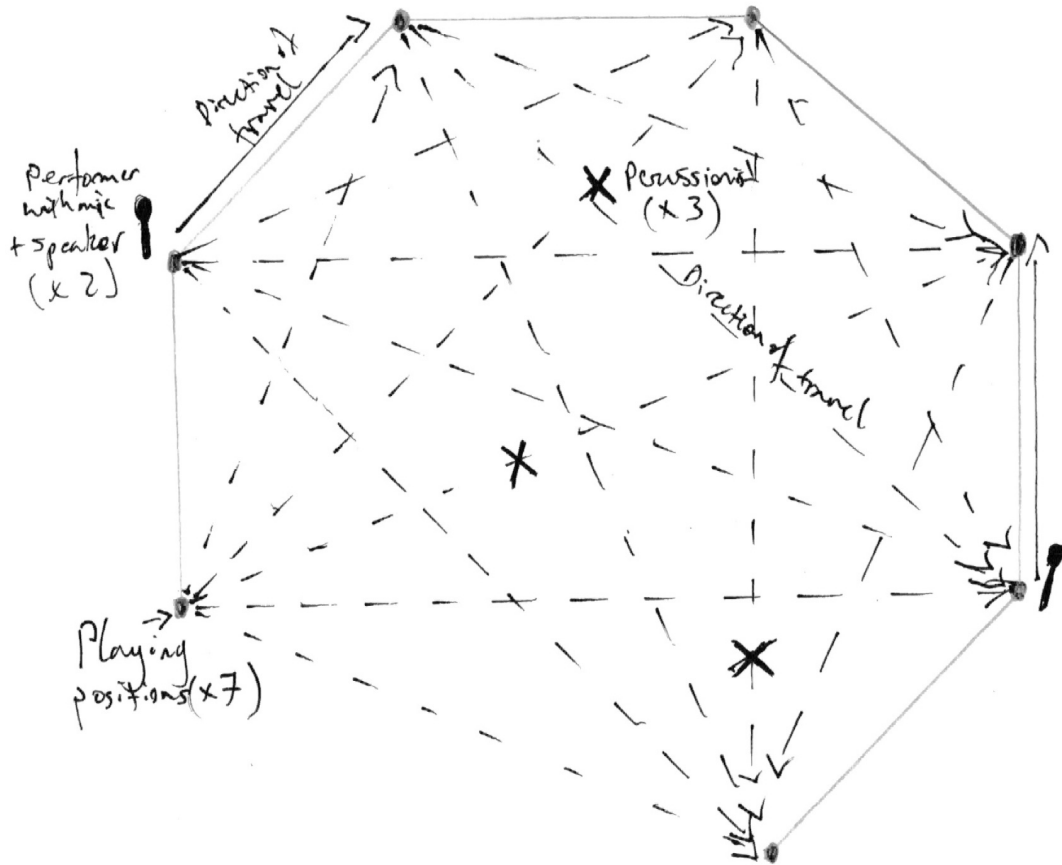 Direction of
travel
performer
with mic
+ speaker
(x 2)
Percussionist
(x 3)
Direction of travel
Playing
positions (x7)